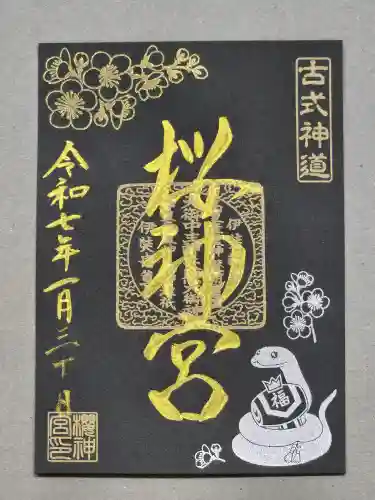 古式神道
桜神宮
令和七年一月三十日
櫻神
宮印
福